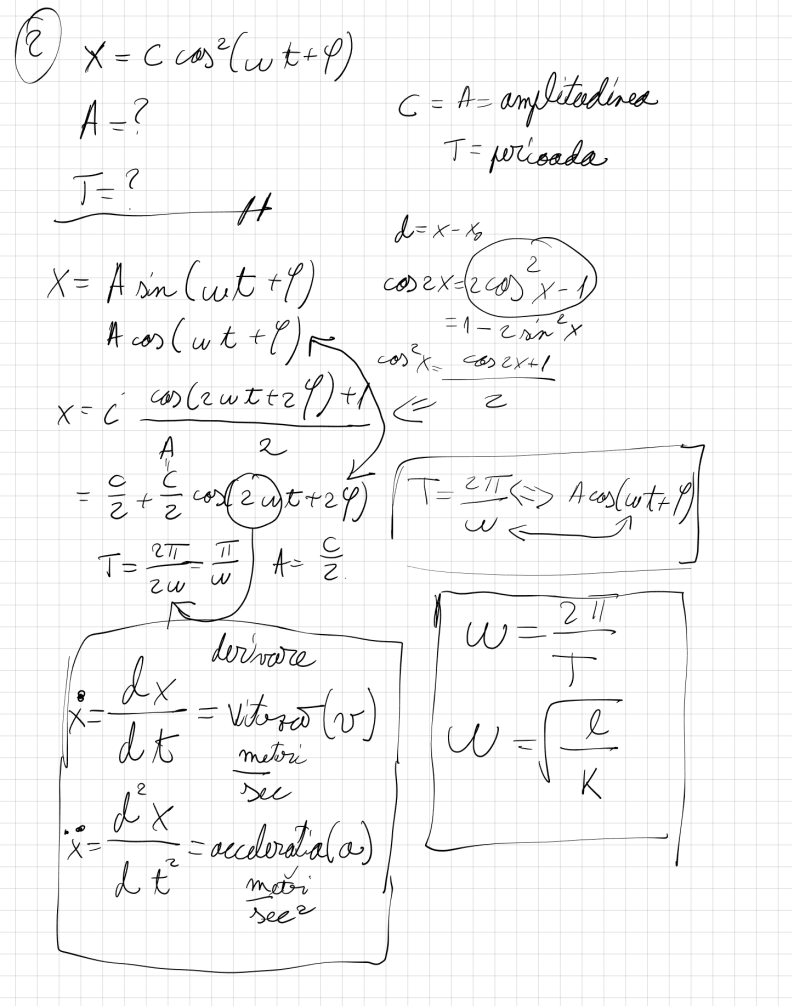 ② x = C cos²(ωt+φ)
A = ?
T = ?
C = A = amplitudinea
T = perioada
d = x - x₀
x = A sin(ωt+φ)
A cos(ωt+φ)
cos2x = 2cos²x - 1
= 1 - 2sin²x
cos²x = (cos2x+1)/2
x = C (cos(2ωt+2φ)+1)/2 <=
A
= C/2 + C/2 cos(2ωt+2φ)
T = 2π/2ω = π/ω A = C/2
T = 2π/ω <=> A cos(ωt+φ)
ω = 2π/T
ω = √(l/K)
derivare
ẋ = dx/dt = viteză (v)
metri/sec
ẍ = d²x/dt² = accelerația(a)
metri/sec²